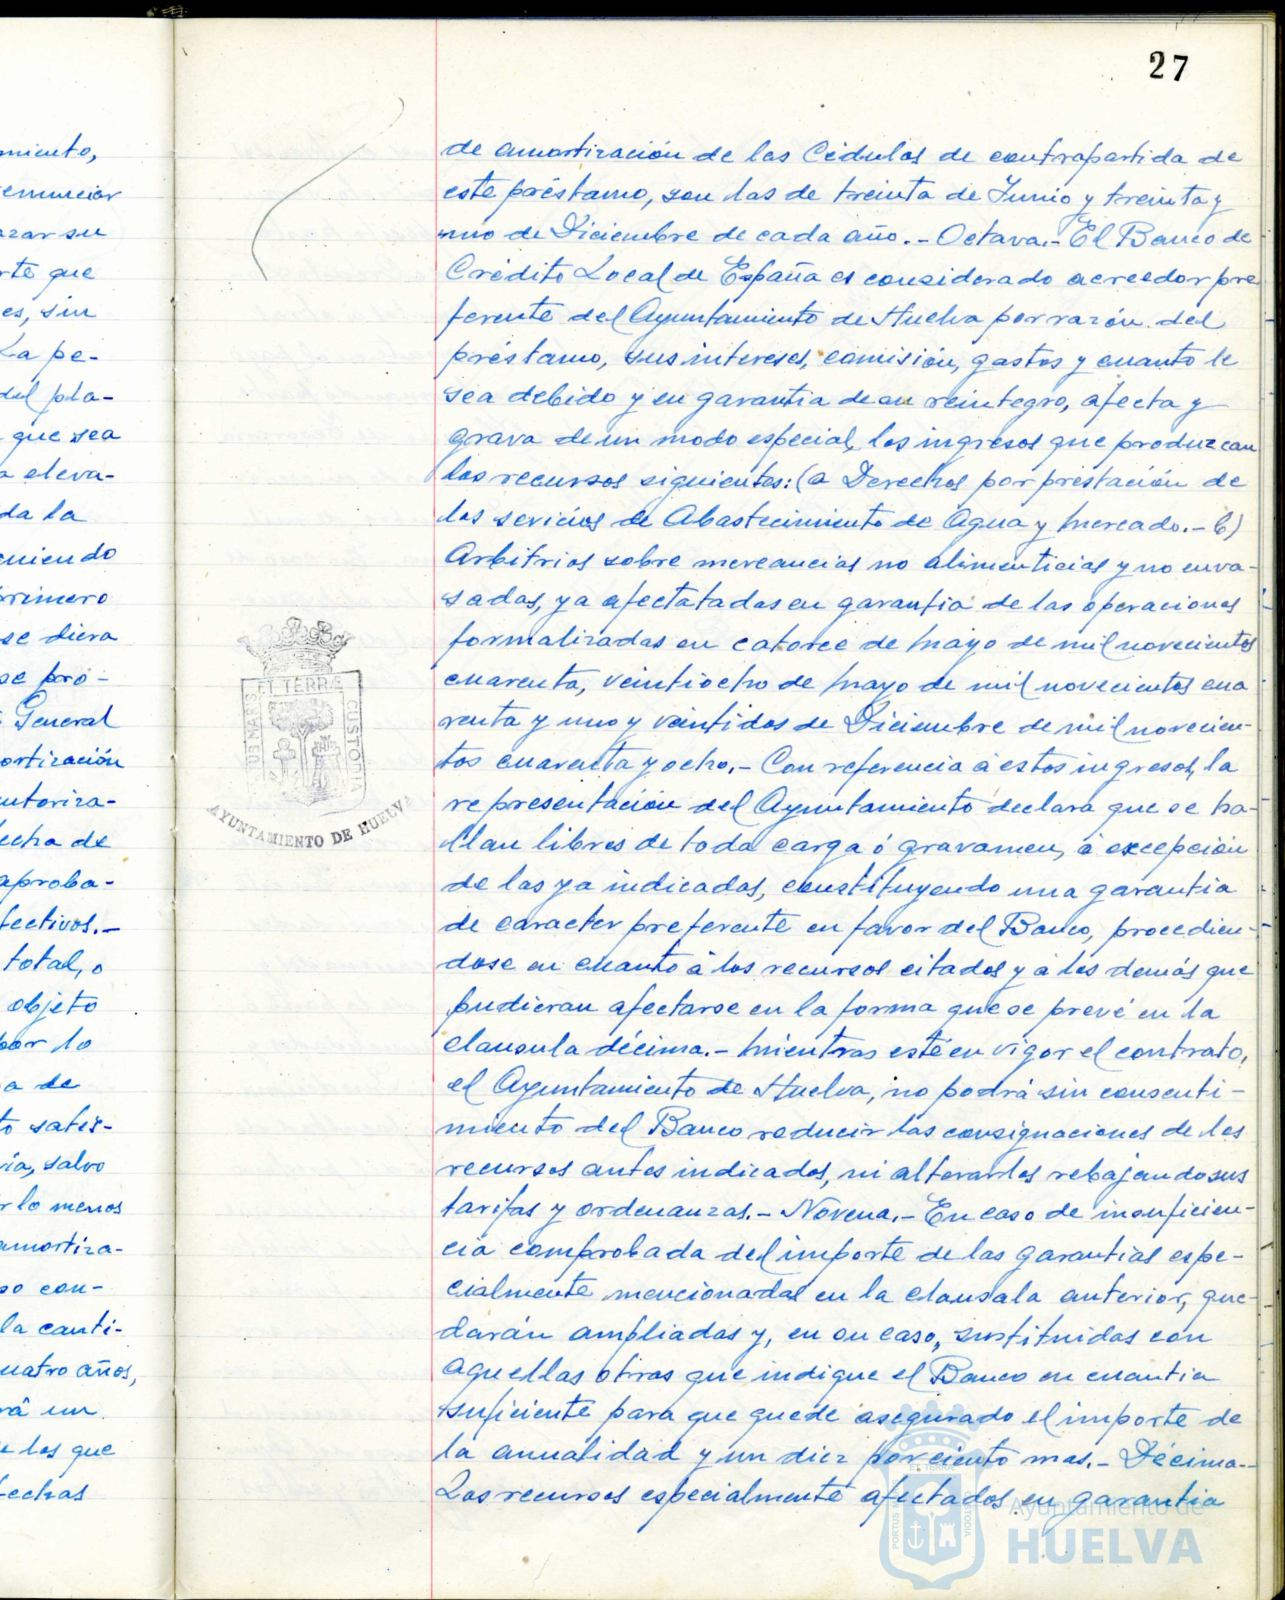 27
miento,
enunciar
azar su
rte que
es, sin
La pe-
del pla-
que sea
a eleva-
da la
eniendo
primero
se diera
se pro-
General
ortización
utoriza-
echa de
aproba-
fectivos.-
total, o
objeto
por lo
a de
to satis-
ía, salvo
r lo menos
amortiza-
so con-
la canti-
uatro años,
rá un
e los que
fechas
de amortización de las Cédulas de contrapartida de
este préstamo, son las de treinta de Junio y treinta y
uno de Diciembre de cada año.- Octava.- El Banco de
Crédito Local de España es considerado acreedor pre
ferente del Ayuntamiento de Huelva por razón del
préstamo, sus intereses, comisión, gastos y cuanto le
sea debido y en garantia de su reintegro, afecta y
grava de un modo especial, los ingresos que produzcan
los recursos siguientes: (a Derechos por prestación de
los sevicios de Abastecimiento de Agua y Mercado.- b)
Arbitrios sobre mercancias no alimenticias y no enva-
sadas, ya afectatadas en garantia de las operaciones
formalizadas en catorce de Mayo de mil novecientos
cuarenta, veintiocho de Mayo de mil novecientos cua
renta y uno y veintidos de Diciembre de mil novecien-
tos cuarenta y ocho.- Con referencia á estos ingresos, la
representación del Ayuntamiento declara que se ha-
llan libres de toda carga ó gravamen, á excepción
de las ya indicadas, constituyendo una garantia
de caracter preferente en favor del Banco, procedien-
dose en cuanto á los recursos citados y á los demás que
pudieran afectarse en la forma que se prevé en la
clausula décima.- Mientras esté en vigor el contrato,
el Ayuntamiento de Huelva, no podrá sin consenti-
miento del Banco reducir las consignaciones de los
recursos antes indicados, ni alterarlos rebajando sus
tarifas y ordenanzas.- Novena.- En caso de insuficien-
cia comprobada del importe de las garantias espe-
cialmente mencionadas en la clausala anterior, que-
darán ampliadas y, en su caso, sustituidas con
aquellas otras que indique el Banco en cuantia
suficiente para que quede asegurado el importe de
la anualidad y un diez por ciento mas.- Décima.-
Los recursos especialmente afectados en garantia
ET TERRÆ
CUSTODIA
AYUNTAMIENTO DE HUELVA
Ayuntamiento de
HUELVA